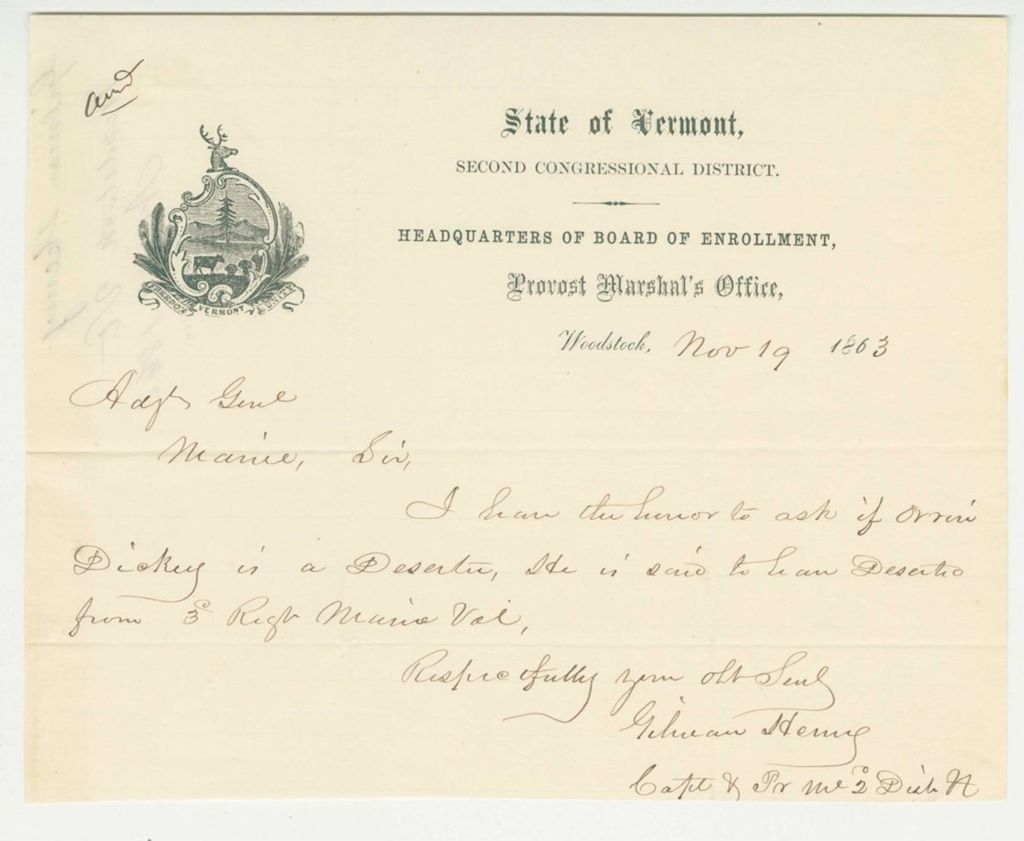 and
State of Vermont,
SECOND CONGRESSIONAL DISTRICT.
HEADQUARTERS OF BOARD OF ENROLLMENT,
Provost Marshal's Office,
Woodstock, Nov 19 1863
FREEDOM & VERMONT UNITY
Adjt Genl
Maine, Sir,
I have the honor to ask if Orrin
Dickey is a Deserter, He is said to have Deserted
from 3d Regt Maine Vol,
Respectfully your obt Servt
Gilman Henry
Capt & Pr Ml 2d Dist Vt